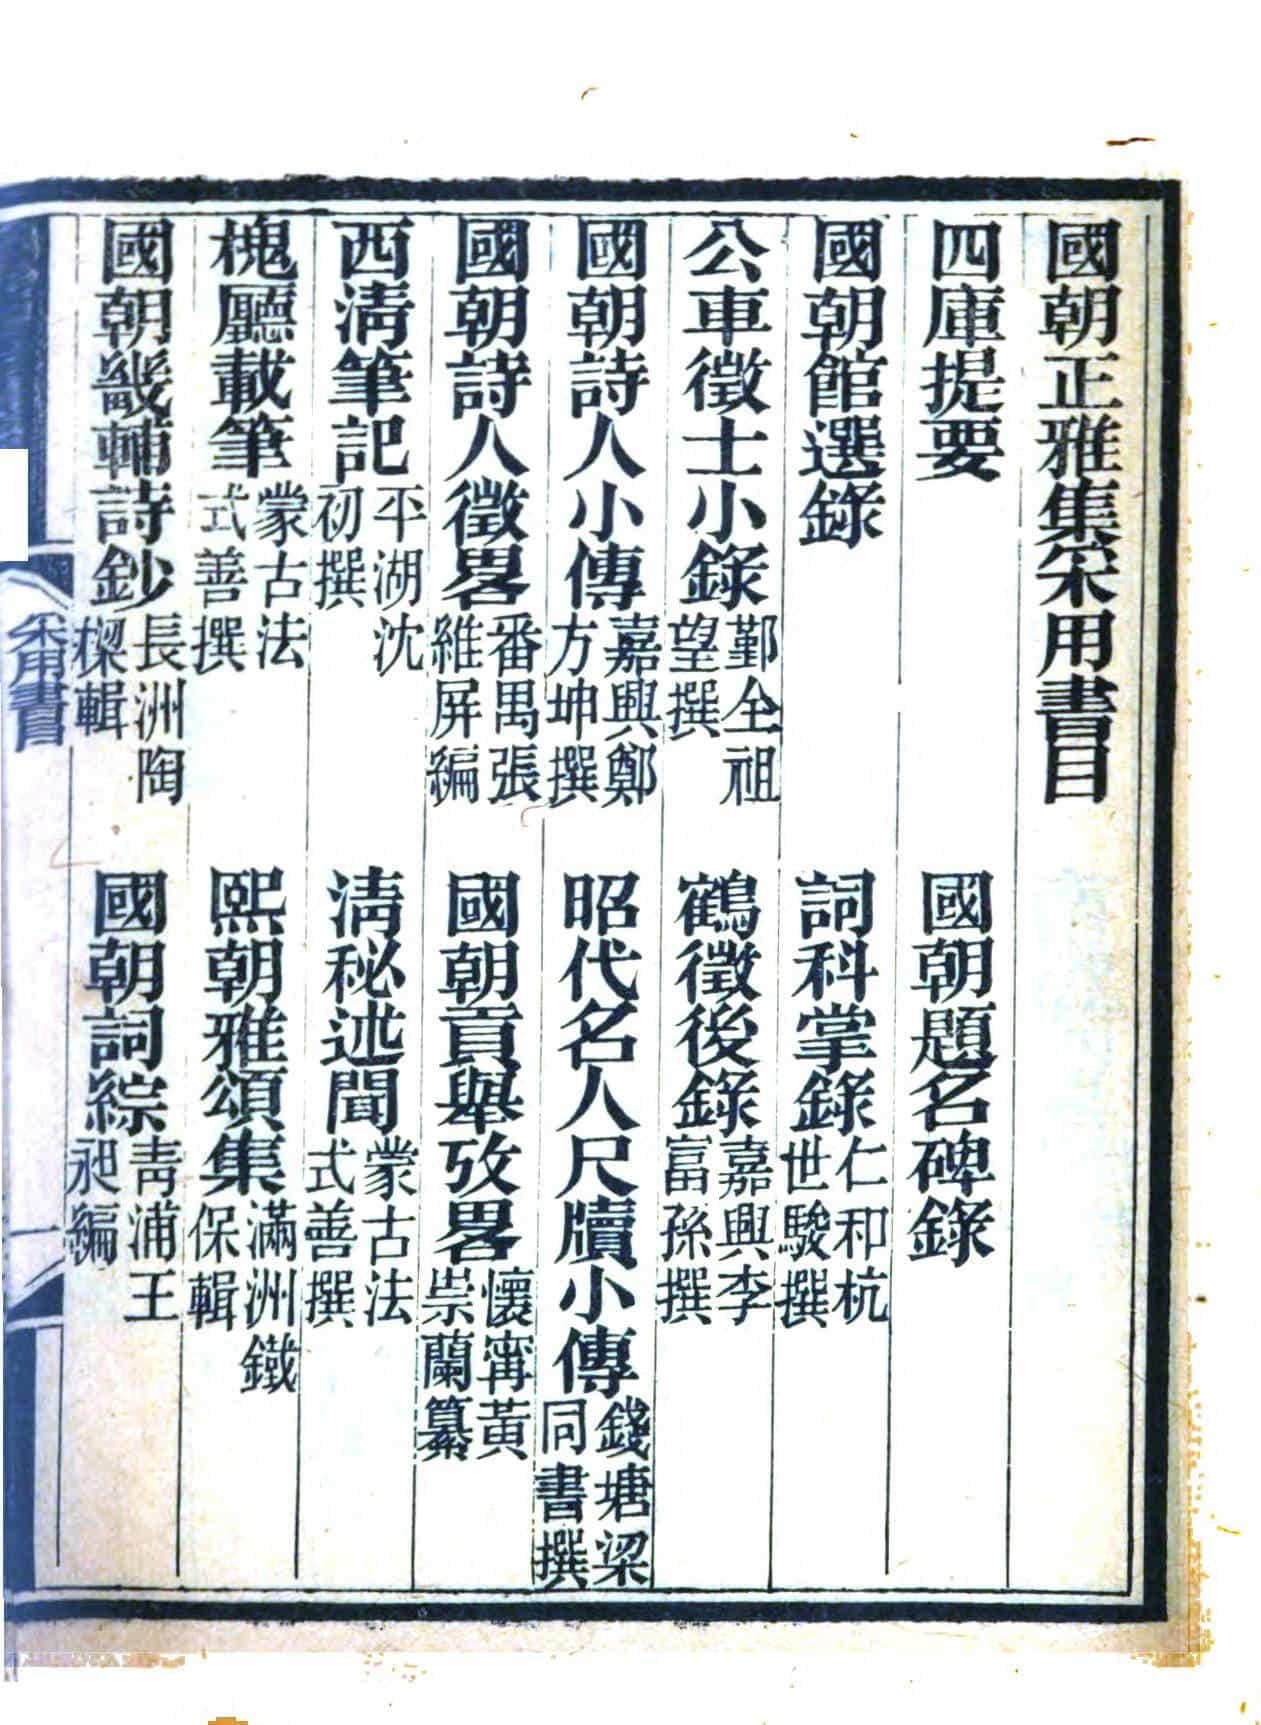 國朝正雅集采用書目
四庫提要 國朝題名碑錄
國朝館選錄 詞科掌錄仁和杭世駿撰
公車徵士小錄鄞全祖望撰 鶴徵後錄嘉興李富孫撰
國朝詩人小傳嘉興鄭方坤撰 昭代名人尺牘小傳錢塘梁同書撰
國朝詩人徵畧番禺張維屏編 國朝貢舉攷畧懷甯黃崇蘭纂
西淸筆記平湖沈初撰 淸秘述聞蒙古法式善撰
槐廳載筆蒙古法式善撰 熙朝雅頌集滿洲鐵保輯
國朝畿輔詩鈔長洲陶樑輯 國朝詞綜靑浦王昶編
采用書目
一